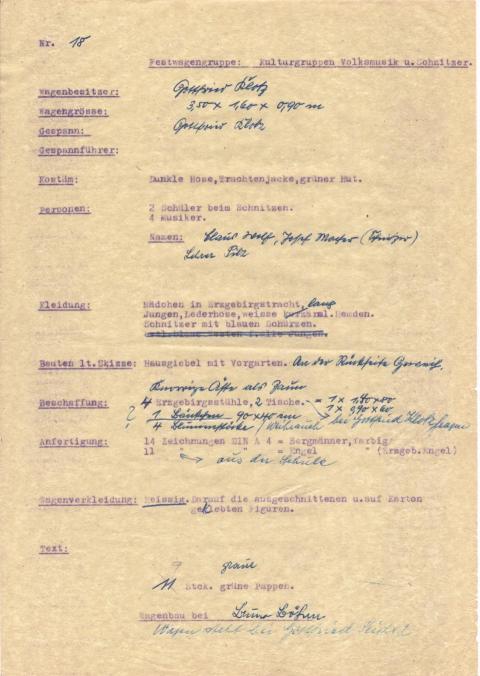 Nr. 18
Festwagengruppe: Kulturgruppen Volksmusik u. Schnitzer.
Wagenbesitzer: Gottfried Klotz
Wagengrösse: 3,50 x 1,60 x 0,90 m
Gespann: Gottfried Klotz
Gespannführer:
Kostüm: Dunkle Hose, Trachtenjacke, grüner Hut.
Personen: 2 Schüler beim Schnitzen.
4 Musiker.
Namen: Claus Wolf, Josef
Lehrer Pilz
Kleidung: Mädchen in Erzgebirgstracht, lang
Jungen, Lederhose, weisse Hemden.
Schnitzer mit blauen Schürzen.
Bauten lt. Skizze: Hausgiebel mit Vorgarten. An der Rückseite
Knorrige Äste als Zaun
Beschaffung: 4 Erzgebirgsstühle, 2 Tische. = 1 x
? 1 Bänkchen 90 x 40 cm 1 x 0,90 x 60
! 4 Blumenstöcke / bei Gottfried Klotz fragen
Anfertigung: 14 Zeichnungen DIN A 4 = Bergmänner, farbig
11 " " = Engel " (Erzgeb. Engel)
aus der Schule
Wagenverkleidung: Reissig. Darauf die ausgeschnittenen u. auf Karton
geklebten Figuren.
Text:
9 graue
11 Stck. grüne Pappen.
Wagenbau bei Böhm
Wagen steht bei Gottfried